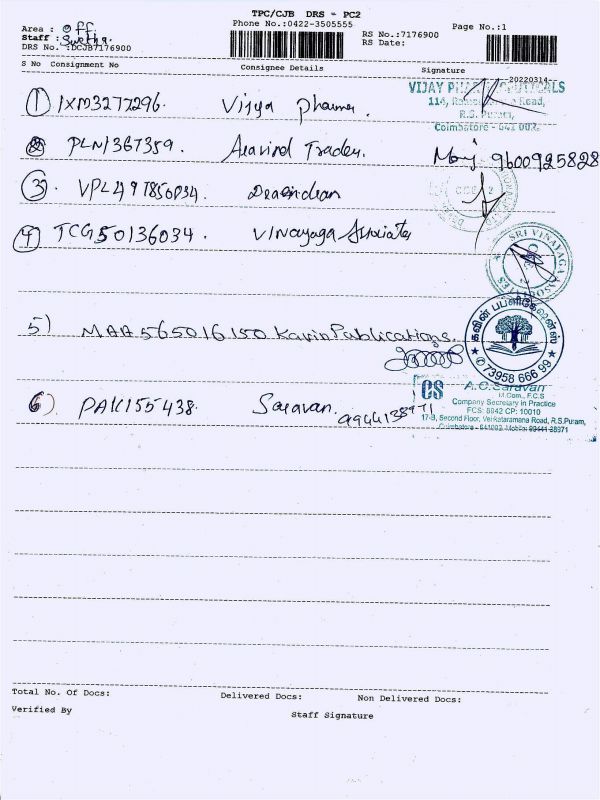 TPC/CJB DRS - PC2
Area : Off
Phone No.:0422-3505555
Page No.:1
Staff : Swetha.
RS No.:7176900
DRS No. :DCJB7176900
RS Date:
S No Consignment No Consignee Details Signature
20220314
VIJAY PHARMACEUTICALS
① IXM3277296. Vijya pharma.
Road,
R.S. Puram,
Coimbatore - 641 002.
② PLN1367389. Aravind Trader. 9600925828
③. VPL497856034.
④ TCG50136034. Vinayaga Associates
SRI VINAYAGA ASSOCIATES
5) MAA565016150 Kavin Publications.
கவின் பப்ளிகேஷன்ஸ்
✆ 73958 666 99
6). PAK155438. Saravan. 9944138971
CS A.C.Saravan
M.Com., F.C.S
Company Secretary in Practice
FCS: 5942 CP: 10010
17-3, Second Floor, Venkataramana Road, R.S.Puram,
Coimbatore - 641002. Mobile: 99441 38971
Total No. Of Docs: Delivered Docs: Non Delivered Docs:
Verified By
Staff Signature